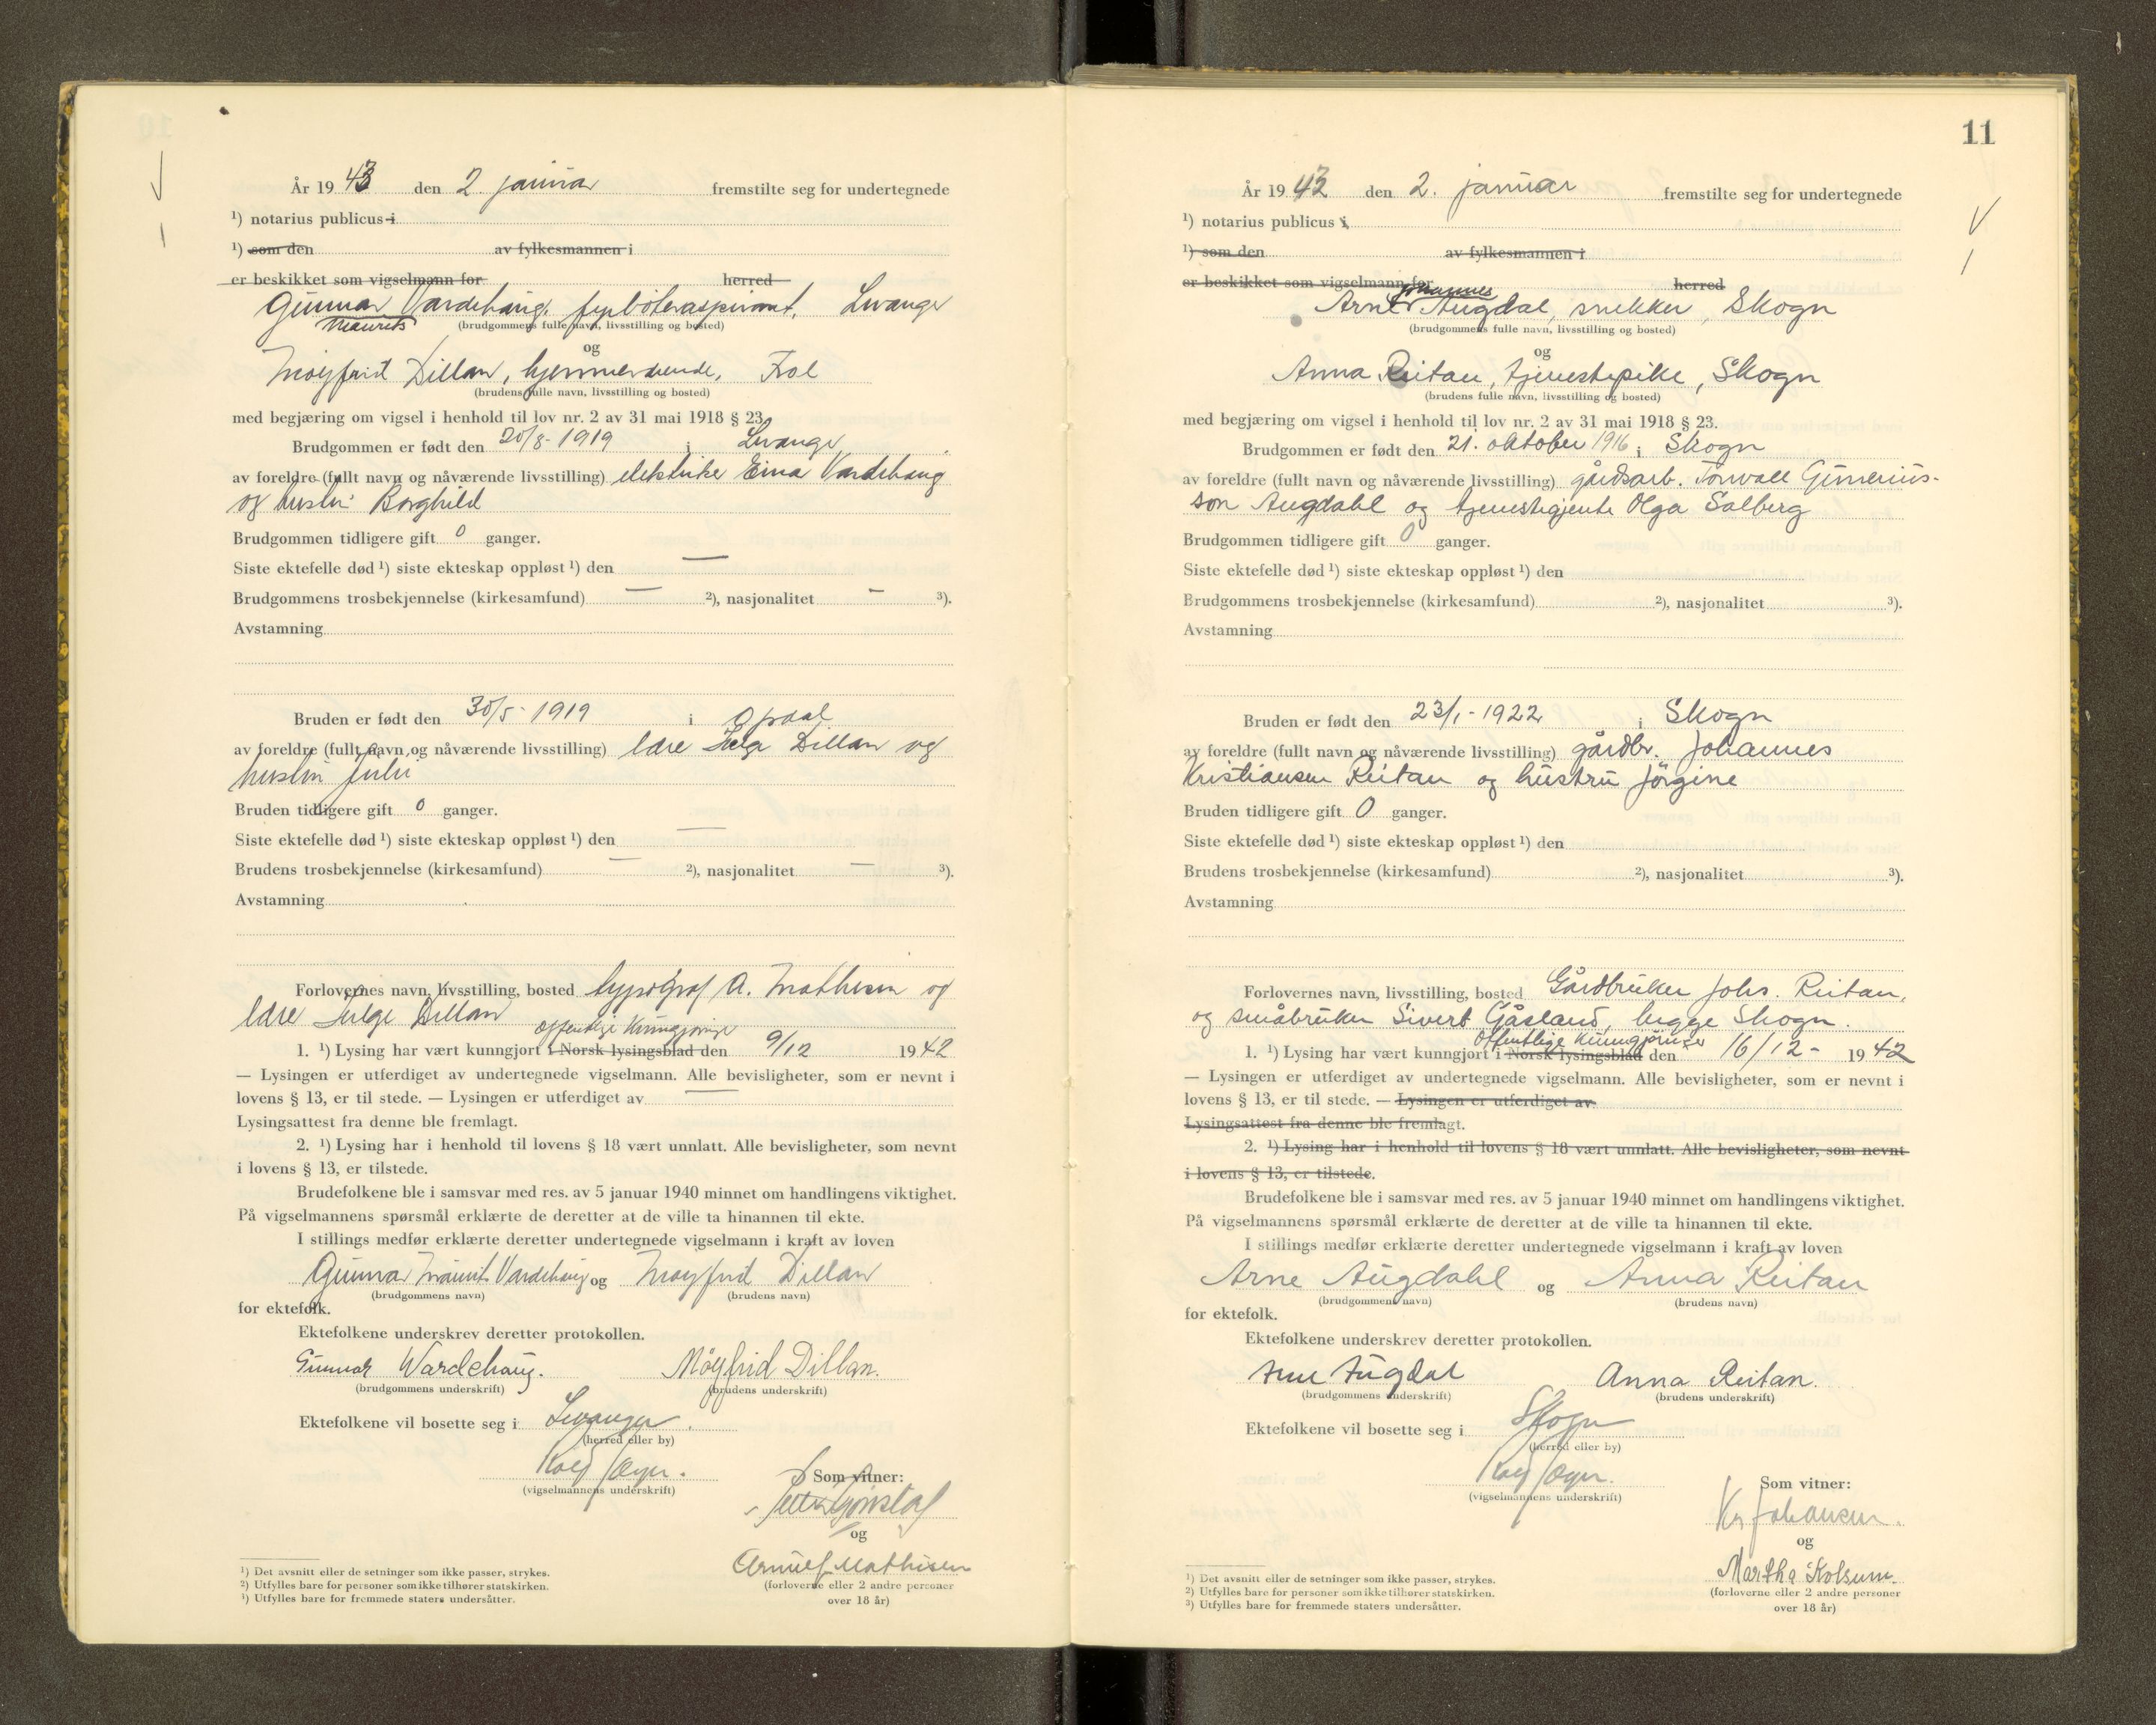 År 1943 den 2. januar fremstilte seg for undertegnede
¹) notarius publicus i
¹) som den av fylkesmannen i
er beskikket som vigselmann for herred
Gunnar Vardehaug, fyrbøteraspirant, Levanger
Maurits
(brudgommens fulle navn, livsstilling og bosted)
og
Møyfrid Dillan, hjemmeværende, Frol
(brudens fulle navn, livsstilling og bosted)
med begjæring om vigsel i henhold til lov nr. 2 av 31 mai 1918 § 23.
Brudgommen er født den 20/8-1919 i Levanger
av foreldre (fullt navn og nåværende livsstilling) elektriker Einar Vardehaug
og hustru Borghild
Brudgommen tidligere gift 0 ganger.
Siste ektefelle død ¹) siste ekteskap oppløst ¹) den —
Brudgommens trosbekjennelse (kirkesamfund) — ²), nasjonalitet - ³).
Avstamning
Bruden er født den 30/5-1919 i Opdal
av foreldre (fullt navn og nåværende livsstilling) lærer Helge Dillan og
hustru Julie
Bruden tidligere gift 0 ganger.
Siste ektefelle død ¹) siste ekteskap oppløst ¹) den —
Brudens trosbekjennelse (kirkesamfund) — ²), nasjonalitet — ³).
Avstamning
Forlovernes navn, livsstilling, bosted typograf A. Mathisen og
lærer Helge Dillan
offentlige kunngjøringer
1. ¹) Lysing har vært kunngjort i Norsk lysingsblad den 9/12 1942
— Lysingen er utferdiget av undertegnede vigselmann. Alle bevisligheter, som er nevnt i
lovens § 13, er til stede. — Lysingen er utferdiget av —
Lysingsattest fra denne ble fremlagt.
2. ¹) Lysing har i henhold til lovens § 18 vært unnlatt. Alle bevisligheter, som nevnt
i lovens § 13, er tilstede.
Brudefolkene ble i samsvar med res. av 5 januar 1940 minnet om handlingens viktighet.
På vigselmannens spørsmål erklærte de deretter at de ville ta hinannen til ekte.
I stillings medfør erklærte deretter undertegnede vigselmann i kraft av loven
Gunnar Maurits Vardehaug og Møyfrid Dillan
(brudgommens navn) (brudens navn)
for ektefolk.
Ektefolkene underskrev deretter protokollen.
Gunnar Wardehaug. Møyfrid Dillan.
(brudgommens underskrift) (brudens underskrift)
Ektefolkene vil bosette seg i Levanger.
(herred eller by)
(vigselmannens underskrift)
Som vitner:
og
Arnulf Mathisen
(forloverne eller 2 andre personer
over 18 år)
¹) Det avsnitt eller de setninger som ikke passer, strykes.
²) Utfylles bare for personer som ikke tilhører statskirken.
³) Utfylles bare for fremmede staters undersåtter.
11
År 1943 den 2. januar fremstilte seg for undertegnede
¹) notarius publicus i
¹) som den av fylkesmannen i
er beskikket som vigselmann for herred
Johannes
Arne Augdal, snekker, Skogn
(brudgommens fulle navn, livsstilling og bosted)
og
Anna Reitan, tjenestepike, Skogn
(brudens fulle navn, livsstilling og bosted)
med begjæring om vigsel i henhold til lov nr. 2 av 31 mai 1918 § 23.
Brudgommen er født den 21. oktober 1916 i Skogn
av foreldre (fullt navn og nåværende livsstilling) gårdsarb. Torvald Gunerius-
son Augdahl og tjenestegjente Olga Salberg
Brudgommen tidligere gift 0 ganger.
Siste ektefelle død ¹) siste ekteskap oppløst ¹) den
Brudgommens trosbekjennelse (kirkesamfund) ²), nasjonalitet ³).
Avstamning
Bruden er født den 23/1-1922 i Skogn
av foreldre (fullt navn og nåværende livsstilling) gårdbr. Johannes
Kristiansen Reitan og hustru Jørgine
Bruden tidligere gift 0 ganger.
Siste ektefelle død ¹) siste ekteskap oppløst ¹) den
Brudens trosbekjennelse (kirkesamfund) ²), nasjonalitet ³).
Avstamning
Forlovernes navn, livsstilling, bosted Gårdbruker Johs. Reitan,
og småbruker Sivert Gåsland, begge Skogn.
offentlige kunngjøringer
1. ¹) Lysing har vært kunngjort i Norsk lysingsblad den 16/12- 1942
— Lysingen er utferdiget av undertegnede vigselmann. Alle bevisligheter, som er nevnt i
lovens § 13, er til stede. — Lysingen er utferdiget av
Lysingsattest fra denne ble fremlagt.
2. ¹) Lysing har i henhold til lovens § 18 vært unnlatt. Alle bevisligheter, som nevnt
i lovens § 13, er tilstede.
Brudefolkene ble i samsvar med res. av 5 januar 1940 minnet om handlingens viktighet.
På vigselmannens spørsmål erklærte de deretter at de ville ta hinannen til ekte.
I stillings medfør erklærte deretter undertegnede vigselmann i kraft av loven
Arne Augdahl og Anna Reitan
(brudgommens navn) (brudens navn)
for ektefolk.
Ektefolkene underskrev deretter protokollen.
Arne Augdal Anna Reitan.
(brudgommens underskrift) (brudens underskrift)
Ektefolkene vil bosette seg i Skogn
(herred eller by)
(vigselmannens underskrift)
Som vitner:
Kr Johansen.
og
Martha Kolsum
(forloverne eller 2 andre personer
over 18 år)
¹) Det avsnitt eller de setninger som ikke passer, strykes.
²) Utfylles bare for personer som ikke tilhører statskirken.
³) Utfylles bare for fremmede staters undersåtter.